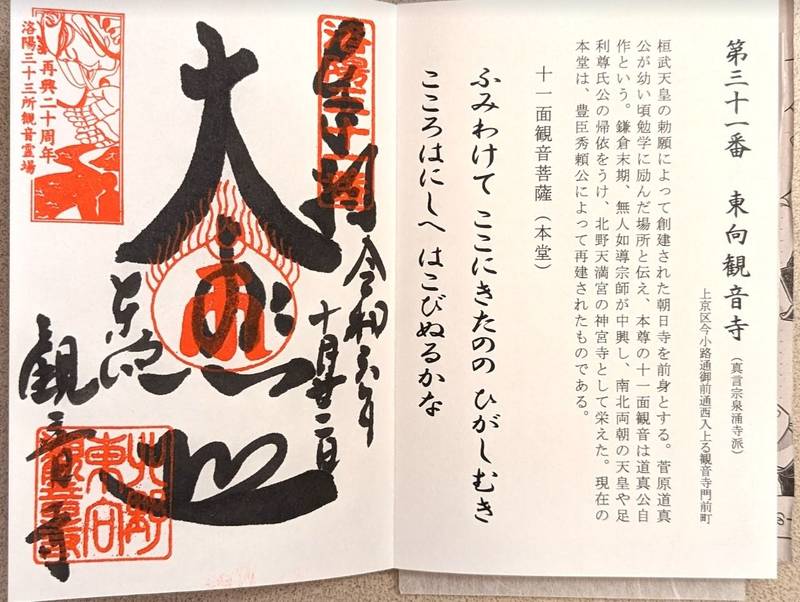 第三十一番　東向観音寺（真言宗泉涌寺派）
上京区今小路通御前通西入上る観音寺門前町
桓武天皇の勅願によって創建された朝日寺を前身とする。菅原道真
公が幼い頃勉学に励んだ場所と伝え、本尊の十一面観音は道真公自
作という。鎌倉末期、無人如導宗師が中興し、南北両朝の天皇や足
利尊氏公の帰依をうけ、北野天満宮の神宮寺として栄えた。現在の
本堂は、豊臣秀頼公によって再建されたものである。
十一面観音菩薩（本堂）
ふみわけて ここにきたのの ひがしむき
こころはにしへ はこびぬるかな
令和六年
十月廿二日
大悲
観音寺
再興二十周年
洛陽三十三所観音霊場
北野
東向
観音寺